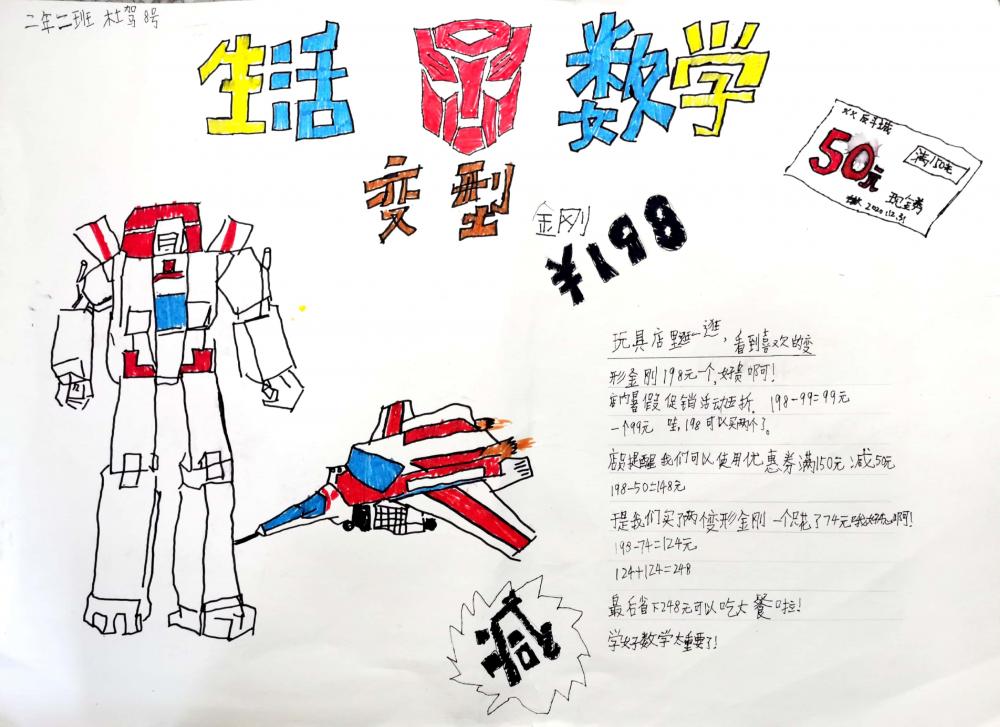 二年二班 杜驾 8号
生活 数学
变型
金刚
¥198
XX玩具城
50元
满150元
现金券
2020.12.31
玩具店里逛一逛,看到喜欢的变
形金刚198元一个,好贵啊!
店内暑假促销活动五折. 198-99=99元
一个99元 哇,198可以买两个了。
店员提醒我们可以使用优惠券满150元减50元
198-50=148元
于是我们买了两个变形金刚 一个只花了74元 啊!
198-74=124元
124+124=248
最后省下248元可以吃大餐啦!
学好数学太重要了!